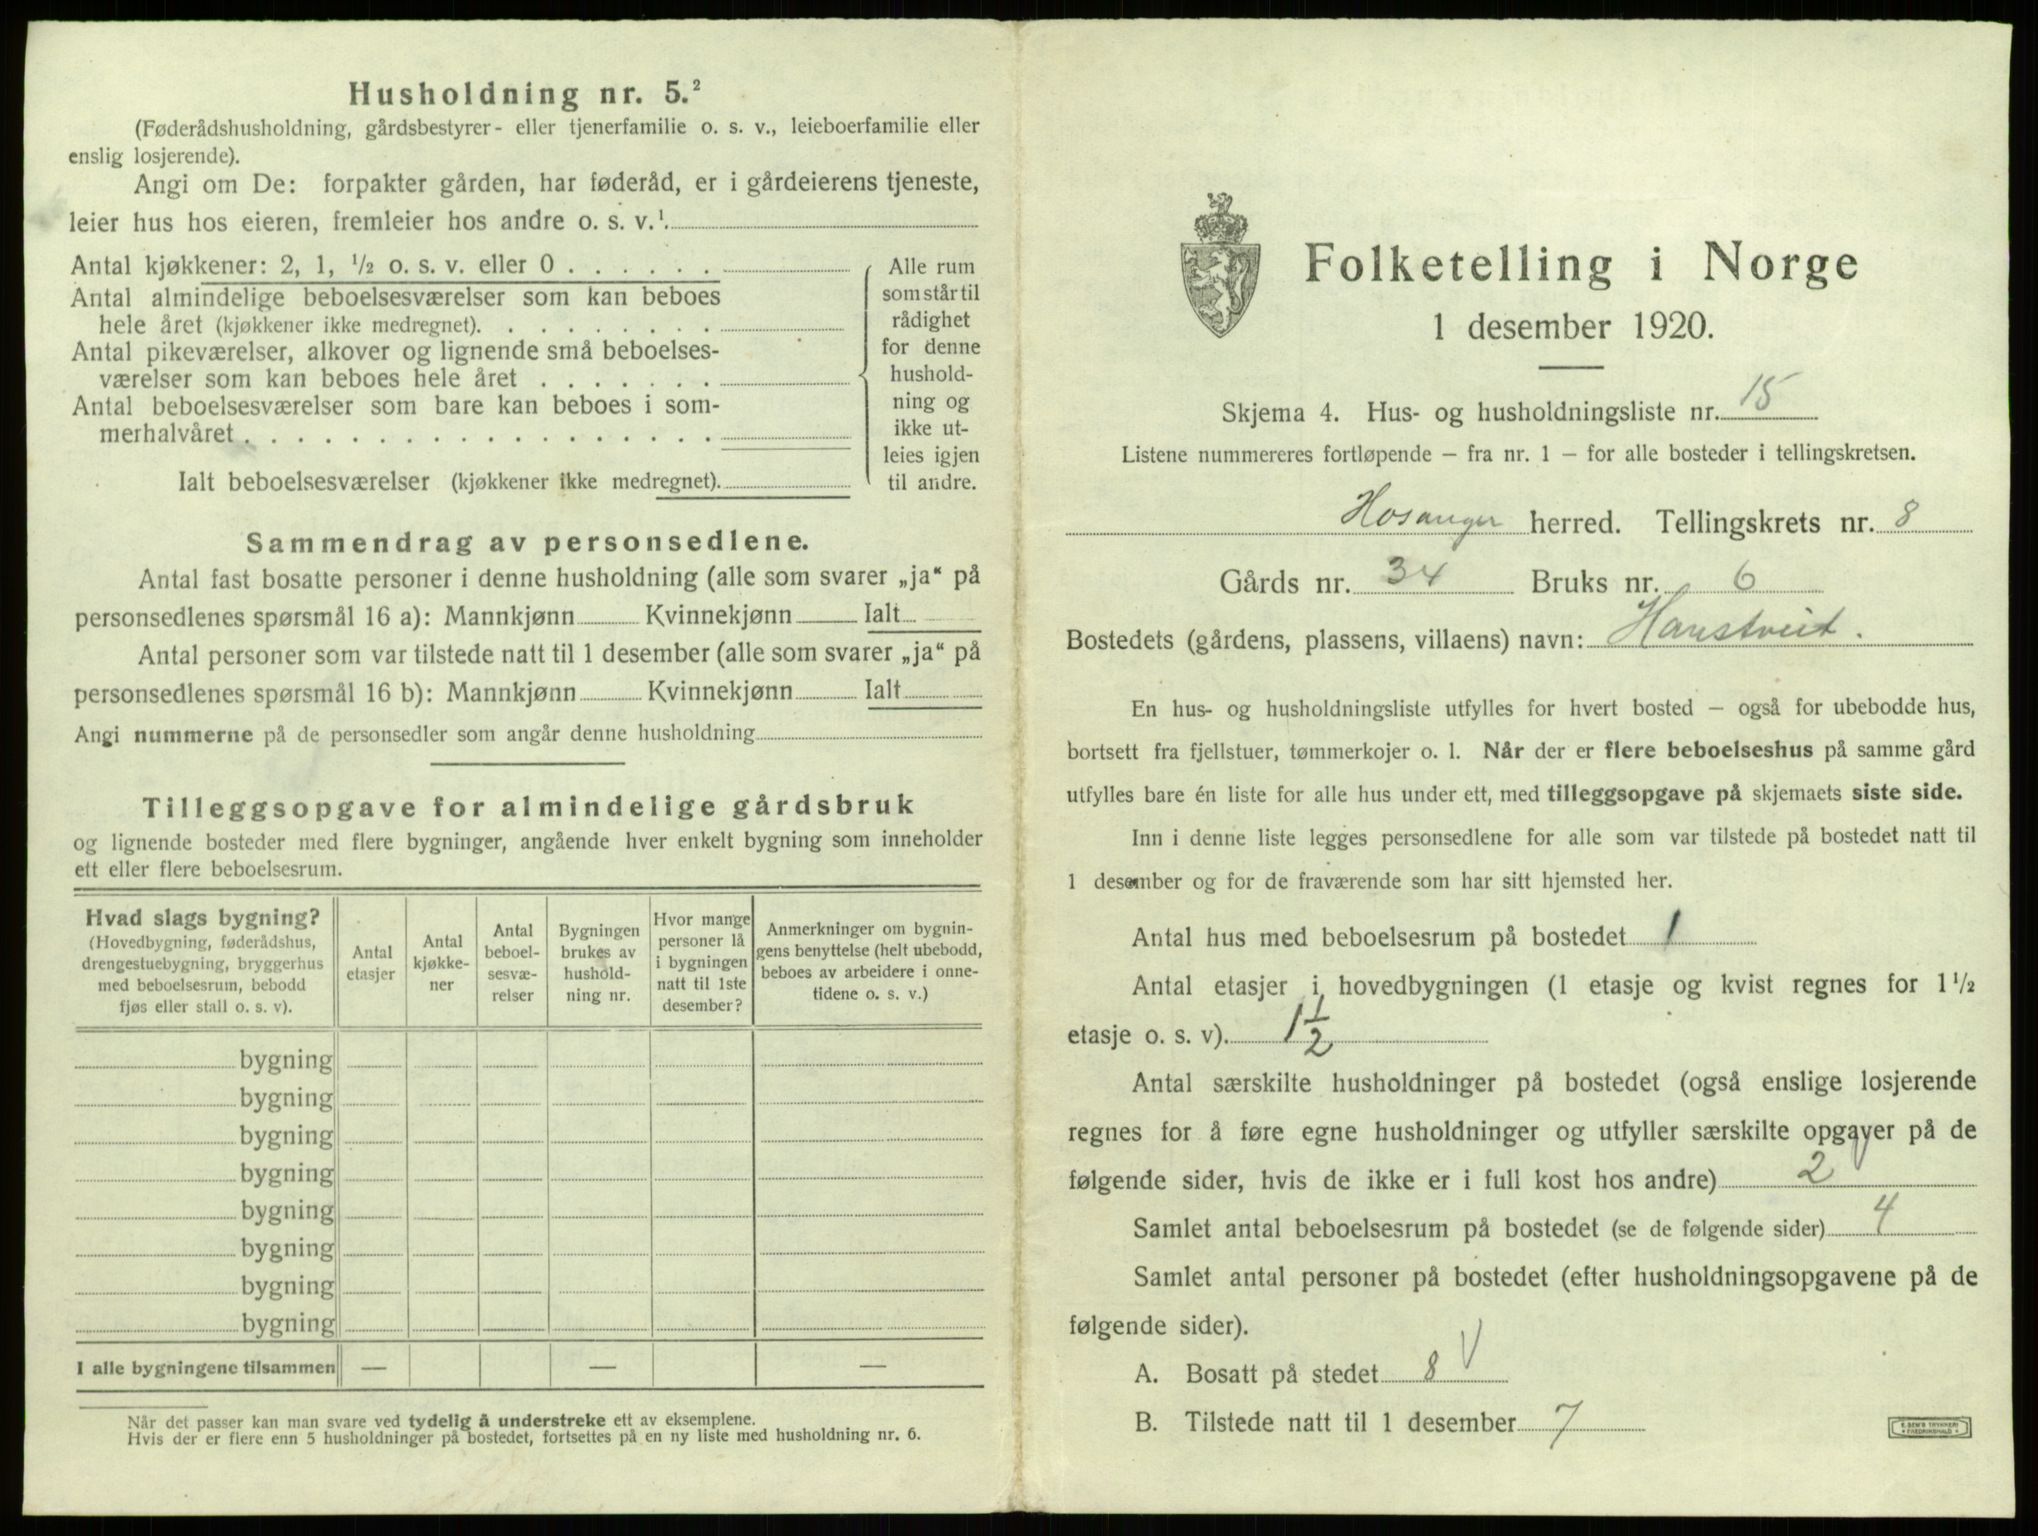 Husholdning nr. 5.²
(Føderådshusholdning, gårdsbestyrer- eller tjenerfamilie o. s. v., leieboerfamilie eller
enslig losjerende).
Angi om De: forpakter gården, har føderåd, er i gårdeierens tjeneste,
leier hus hos eieren, fremleier hos andre o. s. v.¹
Antal kjøkkener: 2, 1, ½ o. s. v. eller 0 . . . . . .
Antal almindelige beboelsesværelser som kan beboes
hele året (kjøkkener ikke medregnet). . . . . . . . .
Antal pikeværelser, alkover og lignende små beboelses-
værelser som kan beboes hele året . . . . . . .
Antal beboelsesværelser som bare kan beboes i som-
merhalvåret . . . . . . . . . . . . . . . . . .
Ialt beboelsesværelser (kjøkkener ikke medregnet).
Alle rum
som står til
rådighet
for denne
hushold-
ning og
ikke ut-
leies igjen
til andre.
Sammendrag av personsedlene.
Antal fast bosatte personer i denne husholdning (alle som svarer „ja“ på
personsedlenes spørsmål 16 a): Mannkjønn Kvinnekjønn Ialt
Antal personer som var tilstede natt til 1 desember (alle som svarer „ja“ på
personsedlenes spørsmål 16 b): Mannkjønn Kvinnekjønn Ialt
Angi nummerne på de personsedler som angår denne husholdning
Tilleggsopgave for almindelige gårdsbruk
og lignende bosteder med flere bygninger, angående hver enkelt bygning som inneholder
ett eller flere beboelsesrum.
Hvad slags bygning?
(Hovedbygning, føderådshus,
drengestuebygning, bryggerhus
med beboelsesrum, bebodd
fjøs eller stall o. s. v).
Antal
etasjer
Antal
kjøkke-
ner
Antal
beboel-
sesvæ-
relser
Bygningen
brukes av
hushold-
ning nr.
Hvor mange
personer lå
i bygningen
natt til 1ste
desember?
Anmerkninger om bygnin-
gens benyttelse (helt ubebodd,
beboes av arbeidere i onne-
tidene o. s. v.)
bygning
bygning
bygning
bygning
bygning
bygning
bygning
bygning
I alle bygningene tilsammen — — —
Når det passer kan man svare ved tydelig å understreke ett av eksemplene.
Hvis der er flere enn 5 husholdninger på bostedet, fortsettes på en ny liste med husholdning nr. 6.
Folketelling i Norge
1 desember 1920.
Skjema 4. Hus- og husholdningsliste nr. 15
Listene nummereres fortløpende – fra nr. 1 – for alle bosteder i tellingskretsen.
Hosanger herred. Tellingskrets nr. 8
Gårds nr. 34 Bruks nr. 6
Bostedets (gårdens, plassens, villaens) navn: Hanstveit.
En hus- og husholdningsliste utfylles for hvert bosted – også for ubebodde hus,
bortsett fra fjellstuer, tømmerkojer o. l. Når der er flere beboelseshus på samme gård
utfylles bare én liste for alle hus under ett, med tilleggsopgave på skjemaets siste side.
Inn i denne liste legges personsedlene for alle som var tilstede på bostedet natt til
1 desember og for de fraværende som har sitt hjemsted her.
Antal hus med beboelsesrum på bostedet 1
Antal etasjer i hovedbygningen (1 etasje og kvist regnes for 1½
etasje o. s. v). 1½
Antal særskilte husholdninger på bostedet (også enslige losjerende
regnes for å føre egne husholdninger og utfyller særskilte opgaver på de
følgende sider, hvis de ikke er i full kost hos andre) 2
Samlet antal beboelsesrum på bostedet (se de følgende sider) 4
Samlet antal personer på bostedet (efter husholdningsopgavene på de
følgende sider).
A. Bosatt på stedet 8
B. Tilstede natt til 1 desember 7
E. SEM'S TRYKKERI
FREDRIKSHALD